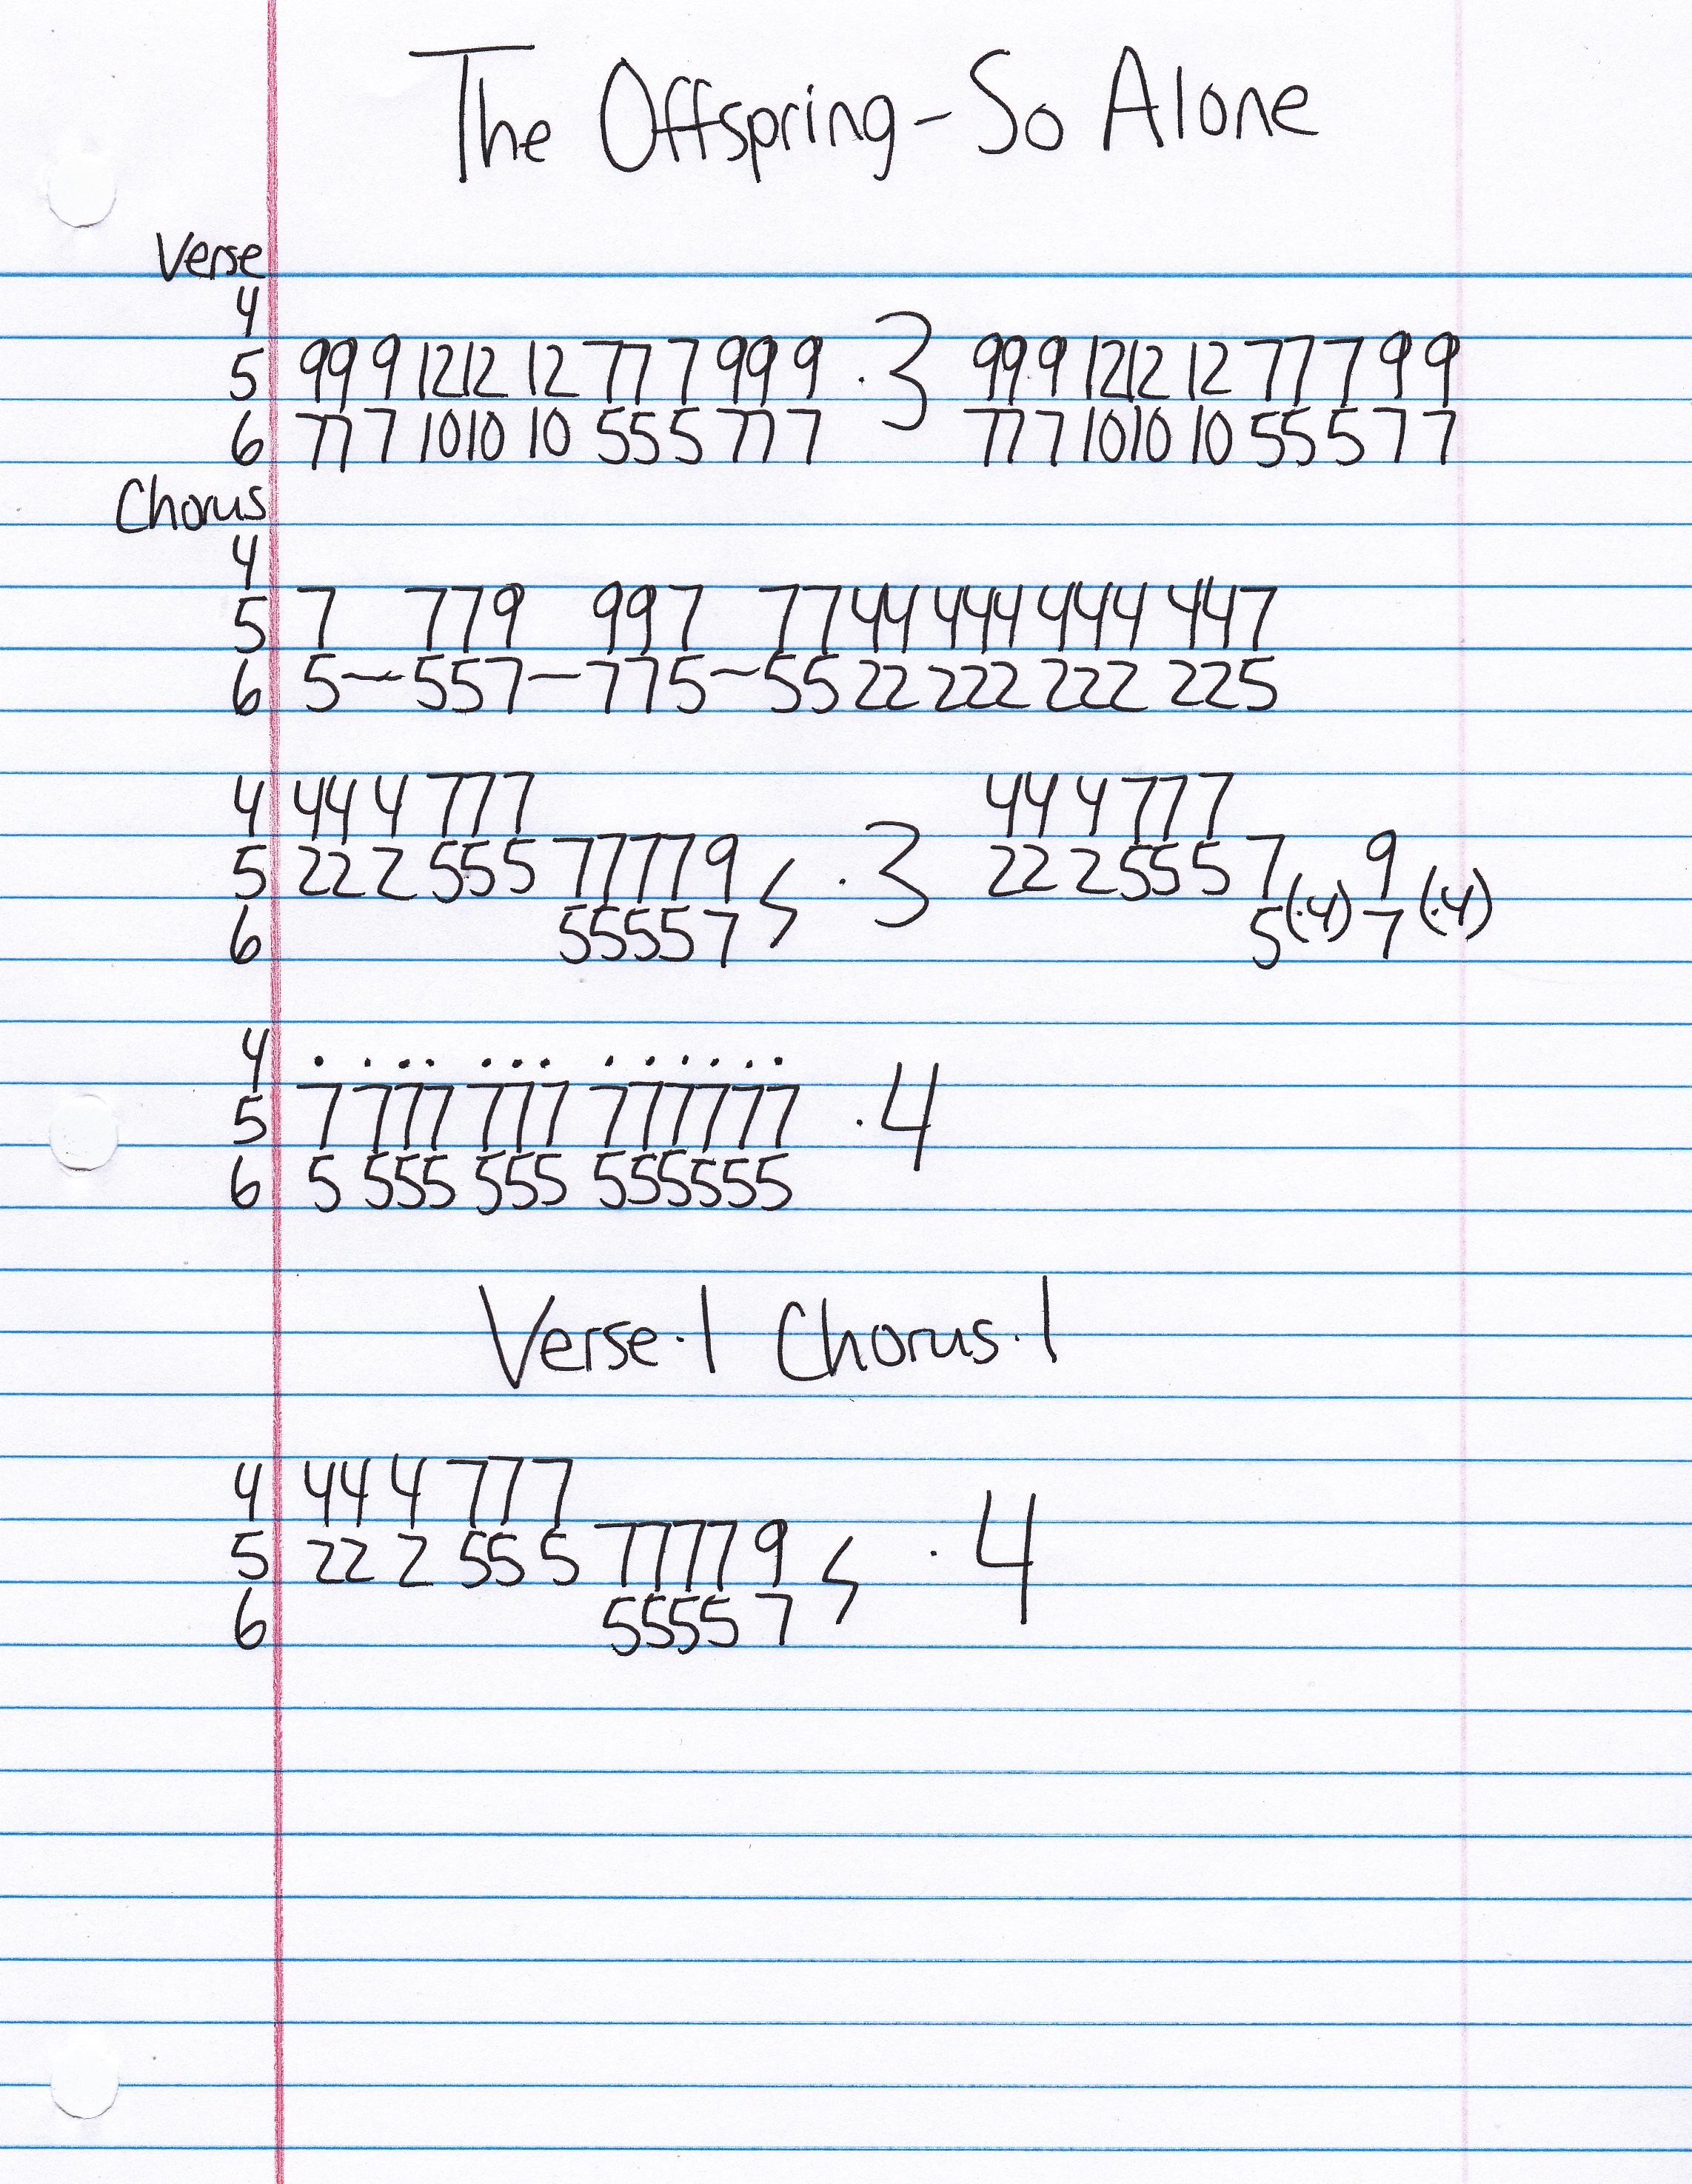 The Offspring - So Alone
Verse
4
5 99 9 1212 12 77 7 99 9 .3 99 9 1212 12 77 7 9 9
6 77 7 1010 10 55 5 77 7 77 7 1010 10 55 5 7 7
Chorus
4
5 7 779 997 7744 444 444 447
6 5-557-775-5522 222 222 225
4 44 4 777 44 4 777
5 22 2 555 77779 .3 22 2 555 7 9
6 55557 5(.4) 7 (.4)
4 . . . . . . . . . . . . .
5 7 777 777 777777 .4
6 5 555 555 555555
Verse.1 Chorus.1
4 44 4 777
5 22 2 55 5 7777 9 .4
6 5555 7